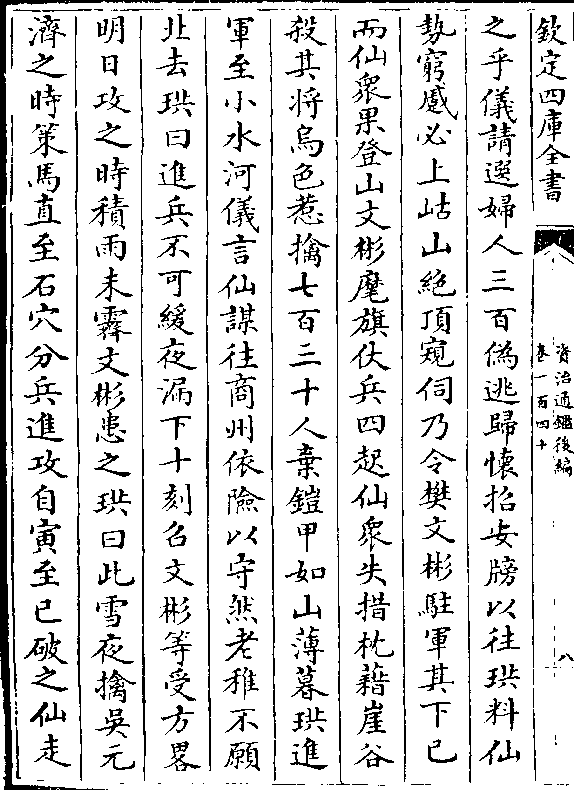 欽定四庫全書
資治通鑑後編
卷一百四十
八
之乎儀請選婦人三百偽逃歸懷招安牓以往珙料仙
勢窮蹙必上岵山絶頂窺伺乃令樊文彬駐軍其下已
而仙衆果登山文彬麾旗伏兵四起仙衆失措枕藉崖谷
殺其将烏色惹擒七百三十人棄鎧甲如山薄暮珙進
軍至小水河儀言仙謀往商州依險以守然老稚不願
北去珙曰進兵不可緩夜漏下十刻召文彬等受方畧
明日攻之時積雨未霽文彬患之珙曰此雪夜擒吳元
濟之時策馬直至石穴分兵進攻自寅至巳破之仙走